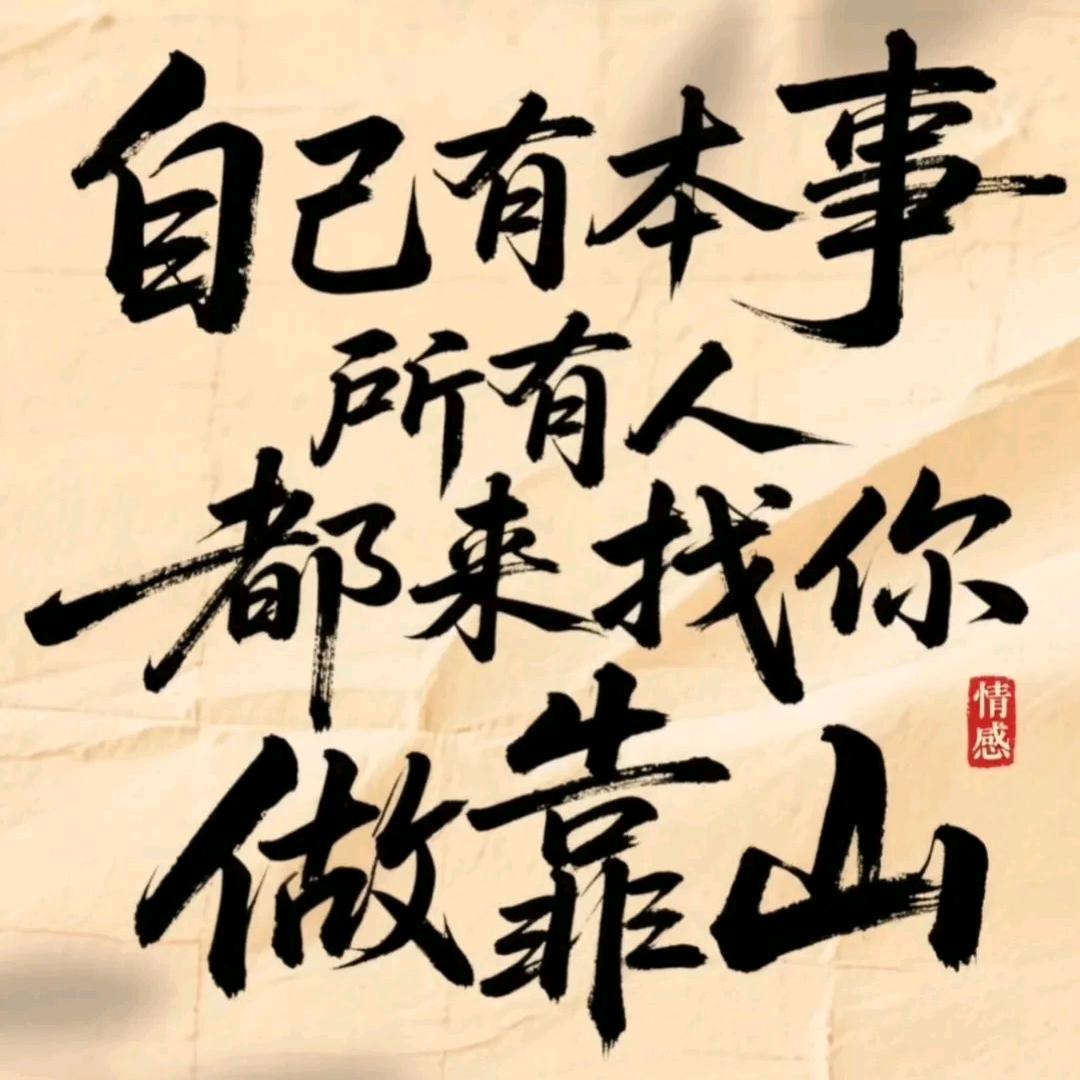 自己有本事
所有人
都来找你
做靠山
情感